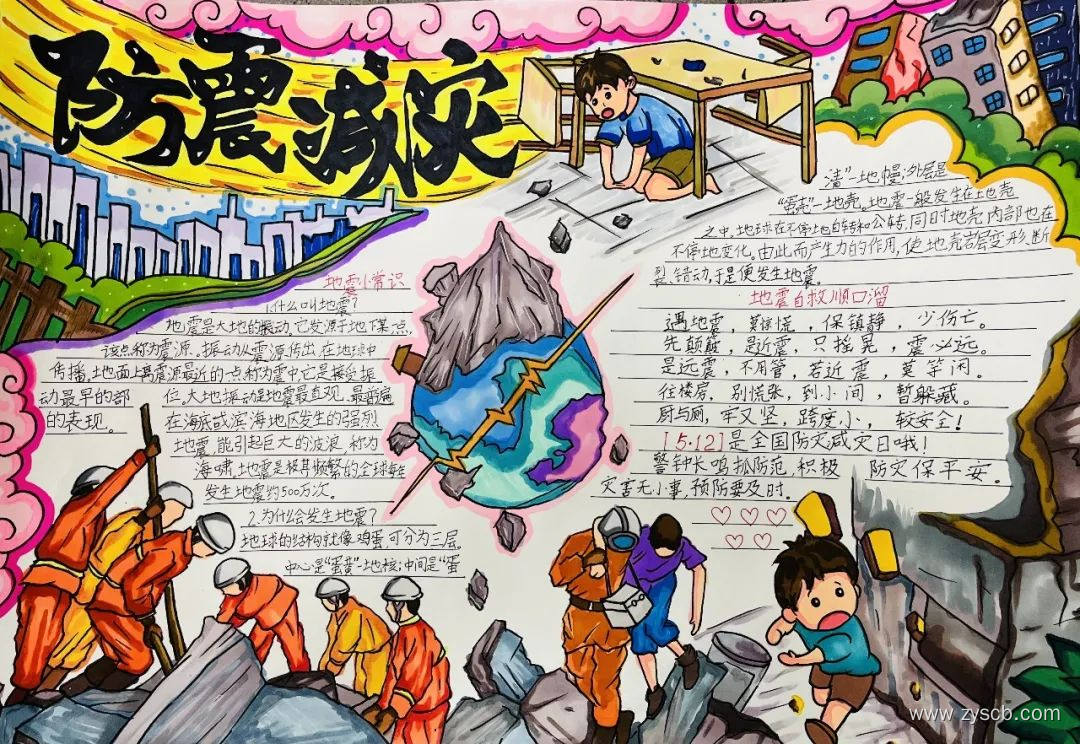 防震减灾
地震小常识
1.什么叫地震?
地震是大地的振动,它发源于地下某点,
该点称为震源。振动从震源传出,在地球中
传播,地面上离震源最近的一点称为震中它是接受振
动最早的部
位,大地振动是地震最直观、最普遍
的表现。
在海底或滨海地区发生的强烈
地震,能引起巨大的波浪,称为
海啸,地震是极其频繁的全球每年
发生地震约500万次。
2.为什么会发生地震?
地球的结构就像鸡蛋,可分为三层。
中心是“蛋黄”-地核;中间是“蛋
清”-地幔;外层是
“蛋壳”-地壳。地震一般发生在地壳
之中。地球在不停地自转和公转,同时地壳内部也在
不停地变化。由此而产生力的作用,使地壳岩层变形、断
裂、错动,于是便发生地震。
地震自救顺口溜
遇地震,莫惊慌,保镇静,少伤亡。
先颠簸,是近震,只摇晃,震必远。
是远震,不用管,若近震,莫等闲。
往楼房,别慌张,到小间,暂躲藏。
厨与厕,牢又坚,跨度小,较安全!
[5.12]是全国防灾减灾日哦!
警钟长鸣抓防范,积极 防灾保平安。
灾害无小事,预防要及时。
www.zyscb.com